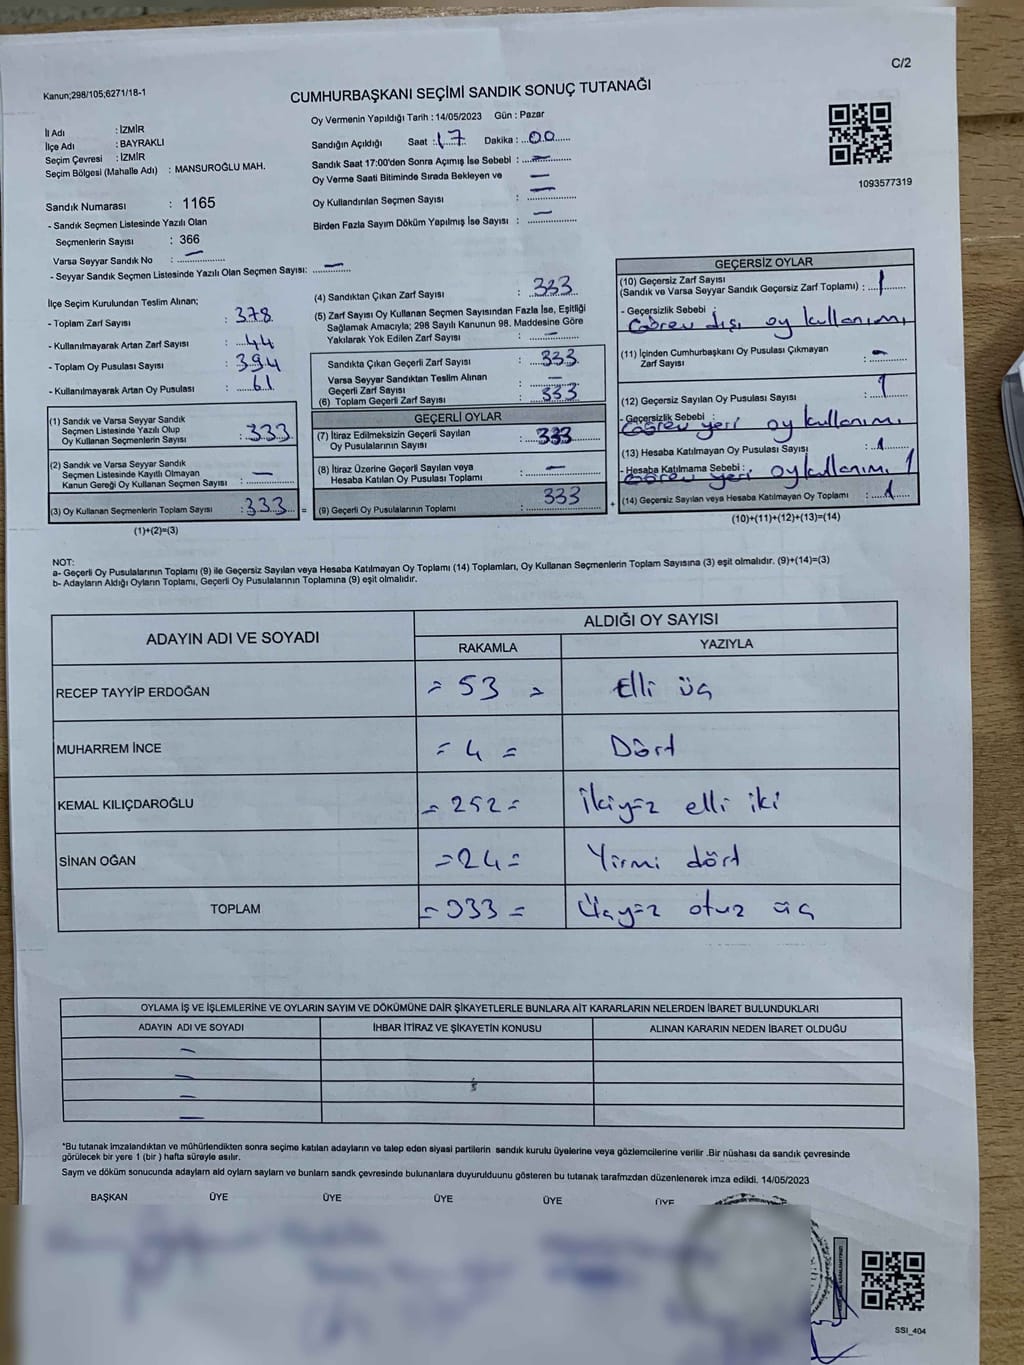 C/2
Kanun;298/105;6271/18-1
CUMHURBAŞKANI SEÇİMİ SANDIK SONUÇ TUTANAĞI
İl Adı : İZMİR
İlçe Adı : BAYRAKLI
Seçim Çevresi : İZMİR
Seçim Bölgesi (Mahalle Adı) : MANSUROĞLU MAH.
Sandık Numarası : 1165
- Sandık Seçmen Listesinde Yazılı Olan
Seçmenlerin Sayısı : 366
Varsa Seyyar Sandık No : —
- Seyyar Sandık Seçmen Listesinde Yazılı Olan Seçmen Sayısı: —
Oy Vermenin Yapıldığı Tarih : 14/05/2023 Gün : Pazar
Sandığın Açıldığı Saat : 17 Dakika : 00
Sandık Saat 17:00'den Sonra Açımış İse Sebebi : —
Oy Verme Saati Bitiminde Sırada Bekleyen ve —
Oy Kullandırılan Seçmen Sayısı : —
Birden Fazla Sayım Döküm Yapılmış İse Sayısı : —
1093577319
İlçe Seçim Kurulundan Teslim Alınan;
- Toplam Zarf Sayısı : 378
- Kullanılmayarak Artan Zarf Sayısı : 44
- Toplam Oy Pusulası Sayısı : 394
- Kullanılmayarak Artan Oy Pusulası : 61
(1) Sandık ve Varsa Seyyar Sandık
Seçmen Listesinde Yazılı Olup
Oy Kullanan Seçmenlerin Sayısı : 333
(2) Sandık ve Varsa Seyyar Sandık
Seçmen Listesinde Kayıtlı Olmayan
Kanun Gereği Oy Kullanan Seçmen Sayısı : —
(3) Oy Kullanan Seçmenlerin Toplam Sayısı : 333 =
(1)+(2)=(3)
(4) Sandıktan Çıkan Zarf Sayısı : 333
(5) Zarf Sayısı Oy Kullanan Seçmen Sayısından Fazla İse, Eşitliği
Sağlamak Amacıyla; 298 Sayılı Kanunun 98. Maddesine Göre
Yakılarak Yok Edilen Zarf Sayısı : —
Sandıkta Çıkan Geçerli Zarf Sayısı : 333
Varsa Seyyar Sandıktan Teslim Alınan
Geçerli Zarf Sayısı : —
(6) Toplam Geçerli Zarf Sayısı : 333
GEÇERLİ OYLAR
(7) İtiraz Edilmeksizin Geçerli Sayılan
Oy Pusulalarının Sayısı : 333
(8) İtiraz Üzerine Geçerli Sayılan veya
Hesaba Katılan Oy Pusulası Toplamı : —
(9) Geçerli Oy Pusulalarının Toplamı : 333 +
GEÇERSİZ OYLAR
(10) Geçersiz Zarf Sayısı
(Sandık ve Varsa Seyyar Sandık Geçersiz Zarf Toplamı) : 1
- Geçersizlik Sebebi :
Görev dışı oy kullanımı
(11) İçinden Cumhurbaşkanı Oy Pusulası Çıkmayan
Zarf Sayısı : —
(12) Geçersiz Sayılan Oy Pusulası Sayısı : 1
- Geçersizlik Sebebi :
Görev yeri oy kullanımı
(13) Hesaba Katılmayan Oy Pusulası Sayısı : 1
- Hesaba Katılmama Sebebi :
Görev yeri oy kullanımı 1
(14) Geçersiz Sayılan veya Hesaba Katılmayan Oy Toplamı : 1
(10)+(11)+(12)+(13)=(14)
NOT:
a- Geçerli Oy Pusulalarının Toplamı (9) ile Geçersiz Sayılan veya Hesaba Katılmayan Oy Toplamı (14) Toplamları, Oy Kullanan Seçmenlerin Toplam Sayısına (3) eşit olmalıdır. (9)+(14)=(3)
b- Adayların Aldığı Oyların Toplamı, Geçerli Oy Pusulalarının Toplamına (9) eşit olmalıdır.
ADAYIN ADI VE SOYADI ALDIĞI OY SAYISI
RAKAMLA YAZIYLA
RECEP TAYYİP ERDOĞAN = 53 = Elli üç
MUHARREM İNCE = 4 = Dört
KEMAL KILIÇDAROĞLU = 252 = İkiyüz elli iki
SİNAN OĞAN = 24 = Yirmi dört
TOPLAM = 333 = Üçyüz otuz üç
OYLAMA İŞ VE İŞLEMLERİNE VE OYLARIN SAYIM VE DÖKÜMÜNE DAİR ŞİKAYETLERLE BUNLARA AİT KARARLARIN NELERDEN İBARET BULUNDUKLARI
ADAYIN ADI VE SOYADI İHBAR İTİRAZ VE ŞİKAYETİN KONUSU ALINAN KARARIN NEDEN İBARET OLDUĞU
—
—
—
—
*Bu tutanak imzalandıktan ve mühürlendikten sonra seçime katılan adayların ve talep eden siyasi partilerin sandık kurulu üyelerine veya gözlemcilerine verilir .Bir nüshası da sandık çevresinde
görülecek bir yere 1 (bir ) hafta süreyle asılır.
Sayım ve döküm sonucunda adayların ald oyların sayların ve bunların sandk çevresinde bulunanlara duyurulduunu gösteren bu tutanak tarafmzdan düzenlenerek imza edildi. 14/05/2023
BAŞKAN ÜYE ÜYE ÜYE ÜYE ÜYE
SSI_404